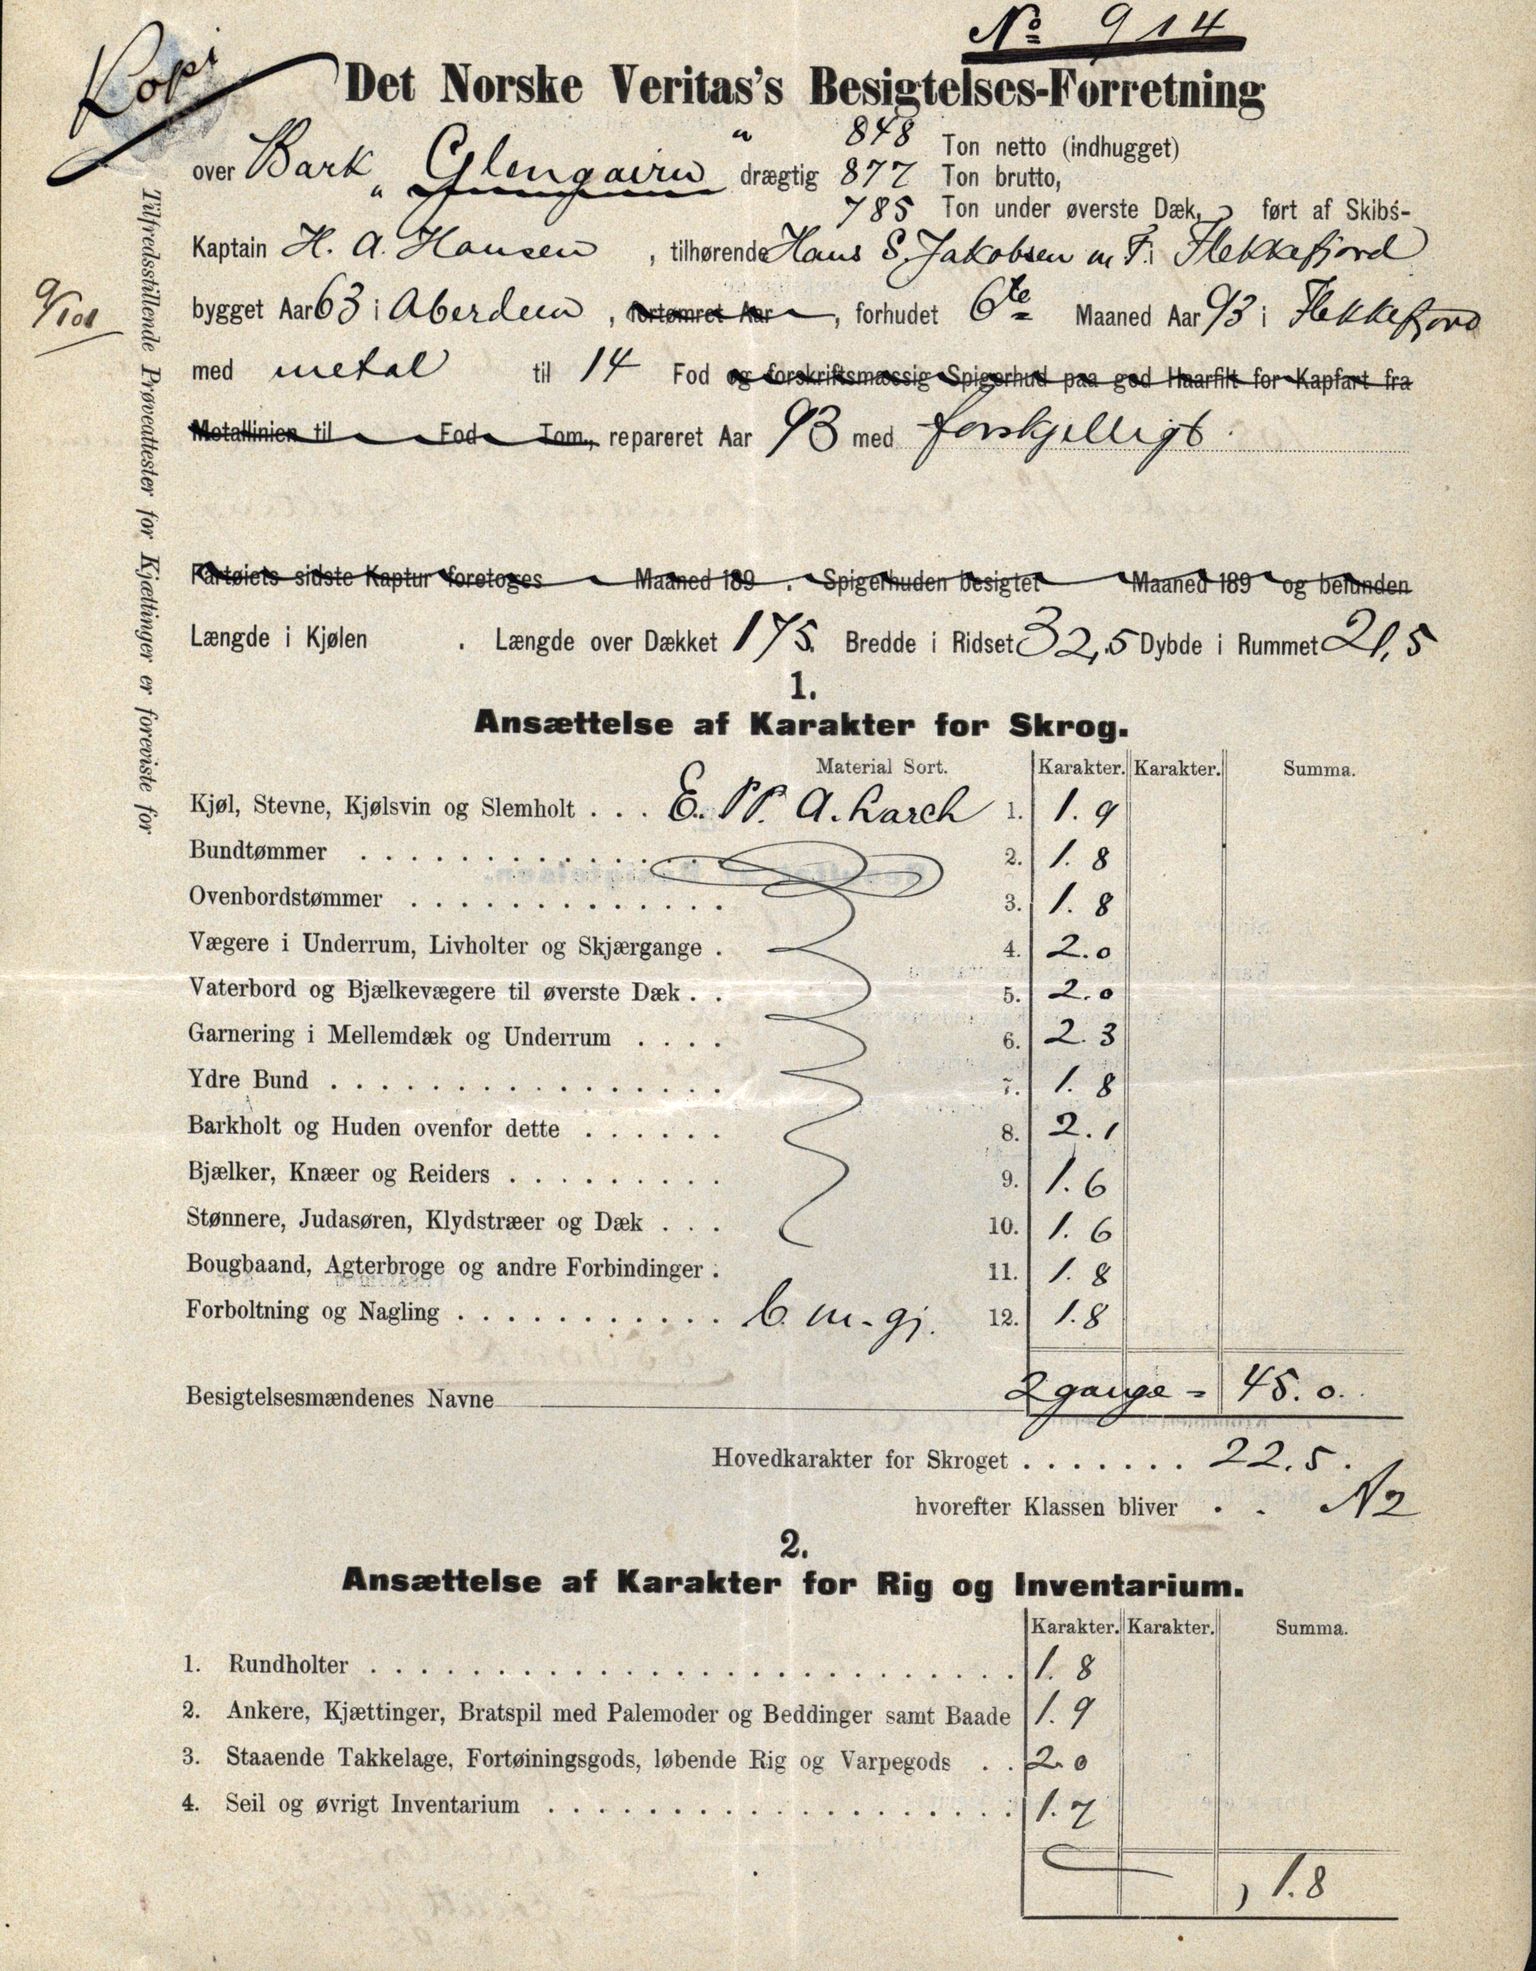 No 914
Kopi
Det Norske Veritas's Besigtelses-Forretning
848 Ton netto (indhugget)
over Bark „Glengairn" drægtig 877 Ton brutto,
785 Ton under øverste Dæk, ført af Skibs-
Kaptain H. A. Hansen, tilhørende Hans S. Jakobsen m F. i Flekkefjord
bygget Aar 63 i Aberdeen, fortømret Aar, forhudet 6te Maaned Aar 93 i Flekkefjord
med metal til 14 Fod og forskriftsmæssig Spigerhud paa god Haarfilt for Kapfart fra
Metallinien til Fod Tom., repareret Aar 93 med forskjelligt.
Fartøiets sidste Kaptur foretoges Maaned 189 . Spigerhuden besigtet Maaned 189 og befunden
Længde i Kjølen . Længde over Dækket 175. Bredde i Ridset 32,5 Dybde i Rummet 21,5
Tilfredsstillende Prøveattester for Kjettinger er foreviste for
1.
Ansættelse af Karakter for Skrog.
Material Sort. Karakter. Karakter. Summa.
Kjøl, Stevne, Kjølsvin og Slemholt . . . E. PP. A. Larch 1. 1.9
Bundtømmer . . . . . . . . . . . . . . 2. 1.8
Ovenbordstømmer . . . . . . . . . . . . . 3. 1.8
Vægere i Underrum, Livholter og Skjærgange . 4. 2.0
Vaterbord og Bjælkevægere til øverste Dæk . . 5. 2.0
Garnering i Mellemdæk og Underrum . . . . 6. 2.3
Ydre Bund . . . . . . . . . . . . . . . . 7. 1.8
Barkholt og Huden ovenfor dette . . . . . . 8. 2.1
Bjælker, Knæer og Reiders . . . . . . . . . 9. 1.6
Stønnere, Judasøren, Klydstræer og Dæk . . . 10. 1.6
Bougbaand, Agterbroge og andre Forbindinger . 11. 1.8
Forboltning og Nagling . . . . . . . . . . . 6. m. gj. 12. 1.8
Besigtelsesmændenes Navne 2 gange = 45.0.
Hovedkarakter for Skroget . . . . . . . 22.5.
hvorefter Klassen bliver . . A2
2.
Ansættelse af Karakter for Rig og Inventarium.
Karakter. Karakter. Summa.
1. Rundholter . . . . . . . . . . . . . . . . . . . . . . . . 1.8
2. Ankere, Kjættinger, Bratspil med Palemoder og Beddinger samt Baade 1.9
3. Staaende Takkelage, Fortøiningsgods, løbende Rig og Varpegods . . 2.0
4. Seil og øvrigt Inventarium . . . . . . . . . . . . . . . . . . 1.7
1.8